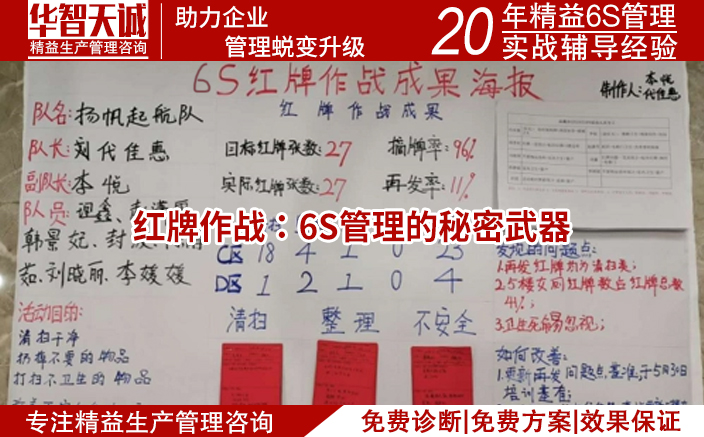 华智天诚
精益生产管理咨询
助力企业
管理蜕变升级
20年精益6S管理
实战辅导经验
6S红牌作战成果海报
制作人:李悦
代佳惠
队名:扬帆起航队
红牌作战成果
队长:刘代佳惠
目标红牌张数:27
摘牌率:96%
副队长:李悦
实际红牌张数:27
再发率:11%
队员:
红牌作战:6S管理的秘密武器
韩景妃、封
C区 18 4 1 0 23
茹、刘晓丽、李媛媛
D区 1 2 1 0 4
发现的问题点:
1.再发红牌为为清扫类;
2.5楼女间红牌数占红牌总数
41%;
3.卫生死角易忽视;
活动目的:
清扫
整理
不安全
清扫干净
扔掉不要的物品
打扫不卫生的物品
如何改善:
1.更新再发问题点基准,于5月30日
培训查看;
专注精益生产管理咨询
免费诊断|免费方案|效果保证